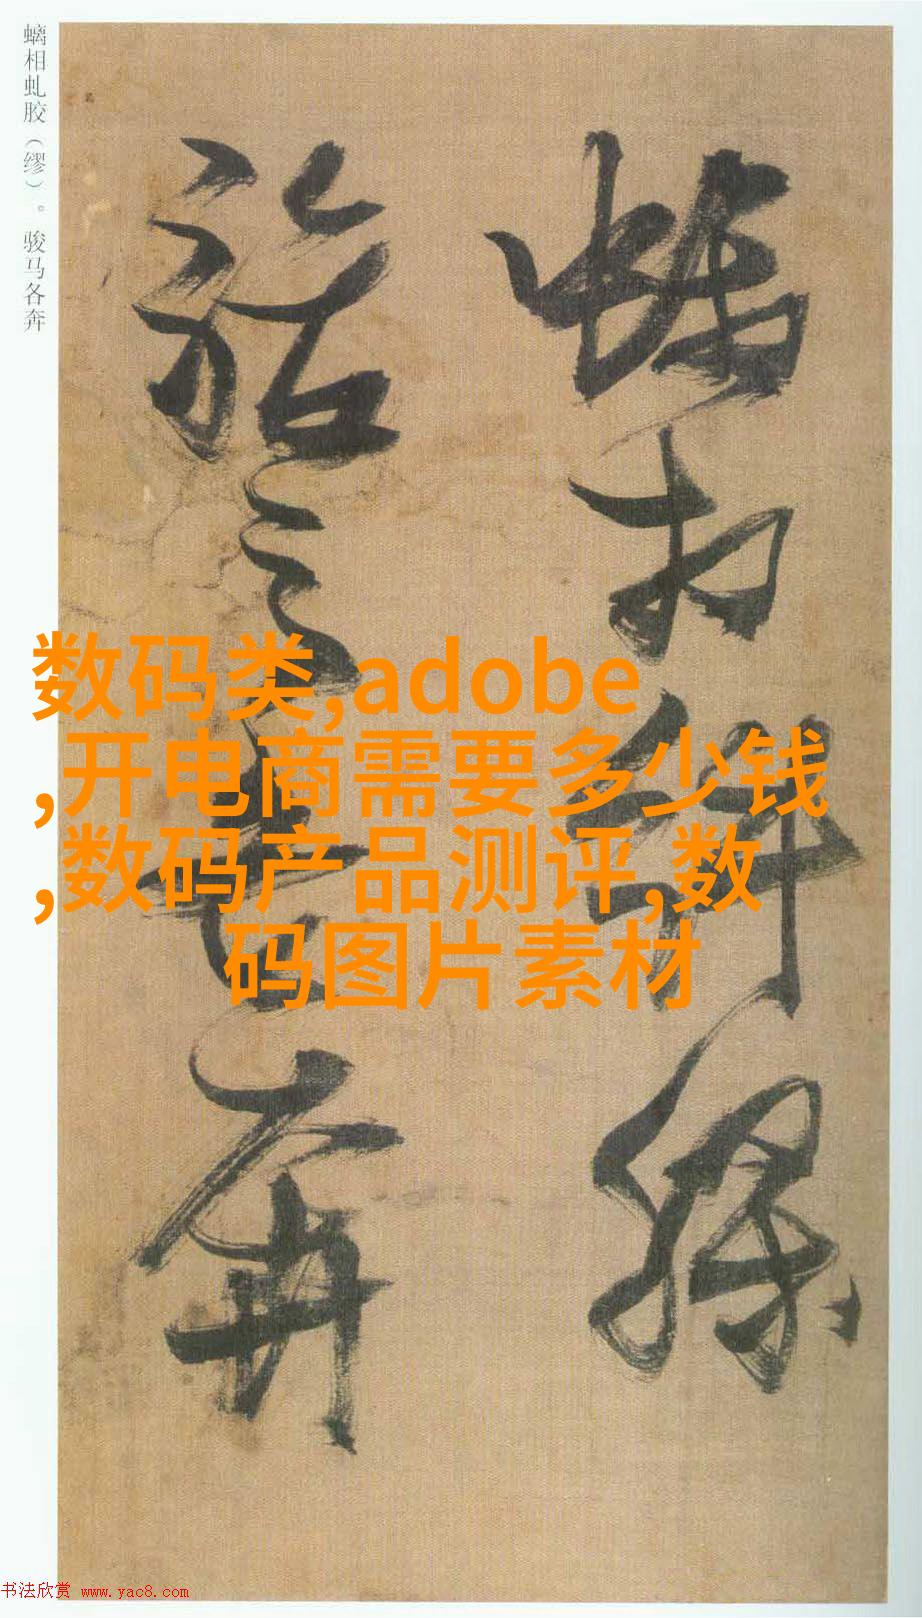 螭相虬胶（缪）。骏马各奔
螭相虬
缪骏
马各奔
数码类,adobe
,开电商需要多少钱
,数码产品测评,数
码图片素材
书法欣赏 www.yac8.com